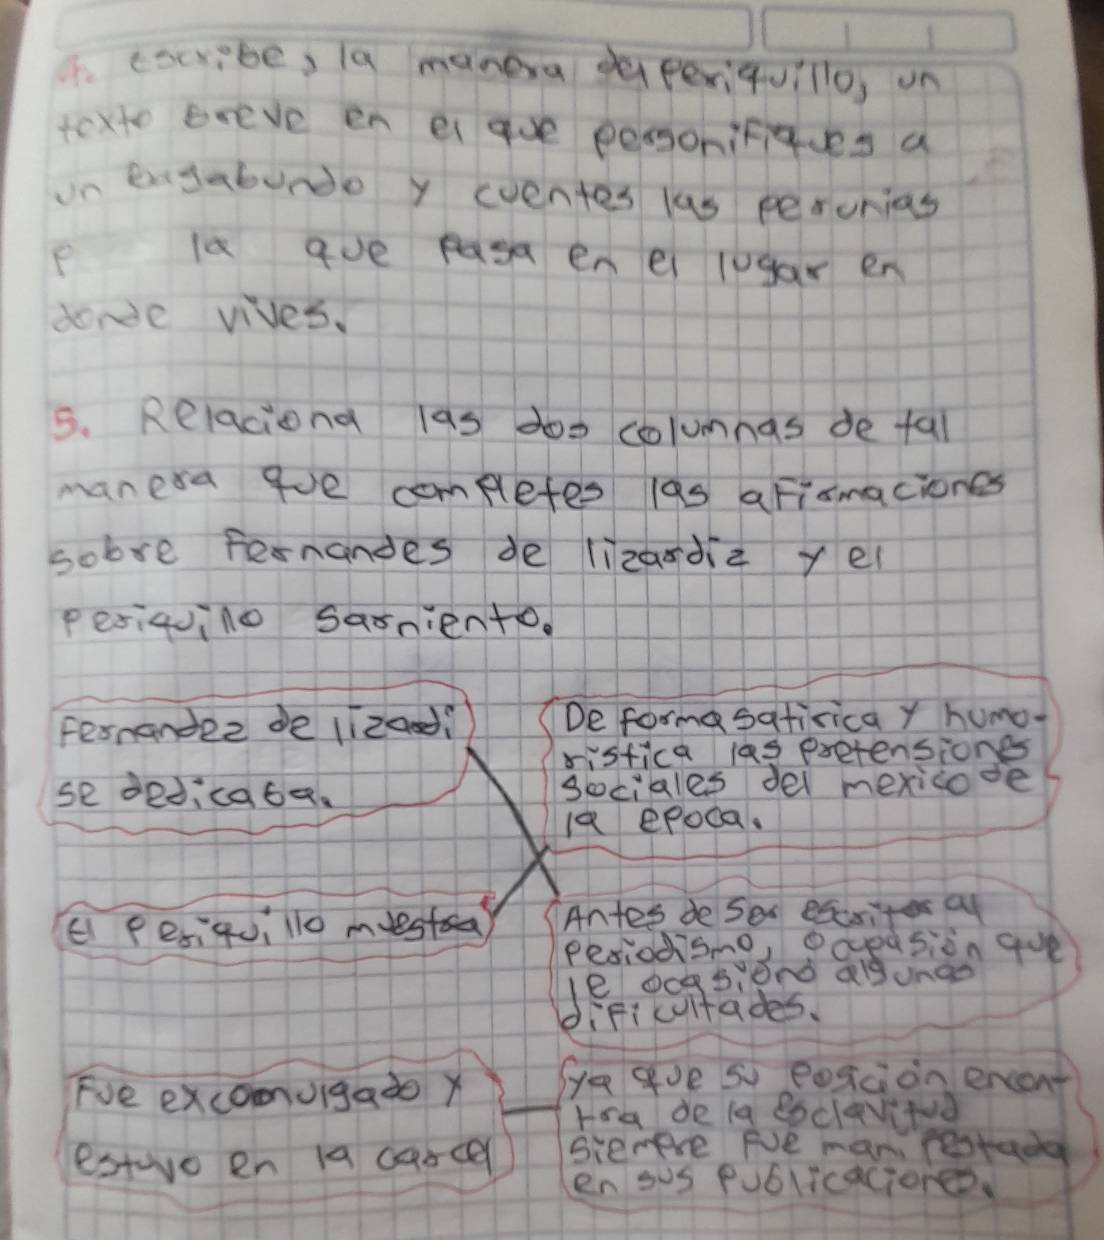 4. escribe, la manera del periquillo, un
texto breve en el que personifiques a
un bagabundo y cuentes las penurias
p la que pasa en el lugar en
donde vives.
5. Relaciona las dos columnas de tal
manera que completes las afirmaciones
sobre Fernandes de lizardiz y el
periquillo sarniento.
Fernandez de lizardi
se dedicaba.
De forma satirica y humo-
ristica las pretensiones
sociales del mexico de
la epoca.
El Periquillo muestra
Antes de ser escritor al
periodismo, ocupasión que
le ocasionó algunas
dificultades.
Fue excomulgado y
estuvo en la carcel
ya que su posición encon-
tra de la esclavitud
siempre fue manifestada
en sus publicaciones.